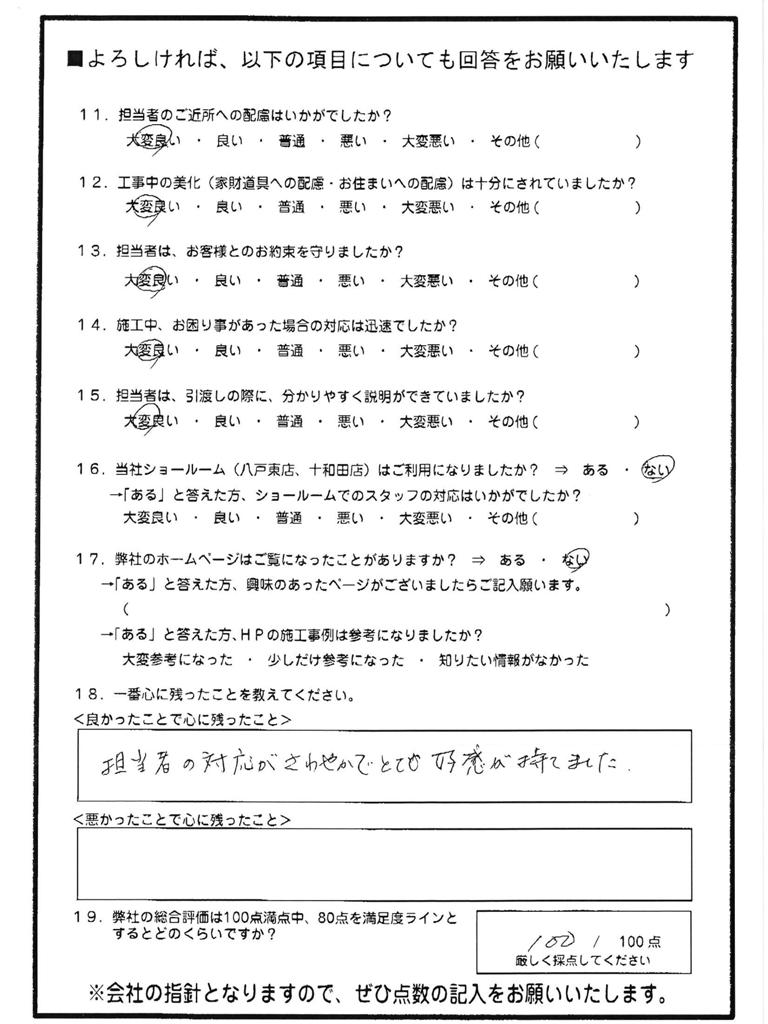 ■よろしければ、以下の項目についても回答をお願いいたします
１１．担当者のご近所への配慮はいかがでしたか？
大変良い ・ 良い ・ 普通 ・ 悪い ・ 大変悪い ・ その他（　　　　　　）
１２．工事中の美化（家財道具への配慮・お住まいへの配慮）は十分にされていましたか？
大変良い ・ 良い ・ 普通 ・ 悪い ・ 大変悪い ・ その他（　　　　　　）
１３．担当者は、お客様とのお約束を守りましたか？
大変良い ・ 良い ・ 普通 ・ 悪い ・ 大変悪い ・ その他（　　　　　　）
１４．施工中、お困り事があった場合の対応は迅速でしたか？
大変良い ・ 良い ・ 普通 ・ 悪い ・ 大変悪い ・ その他（　　　　　　）
１５．担当者は、引渡しの際に、分かりやすく説明ができていましたか？
大変良い ・ 良い ・ 普通 ・ 悪い ・ 大変悪い ・ その他（　　　　　　）
１６．当社ショールーム（八戸東店、十和田店）はご利用になりましたか？ ⇒ ある ・ ない
→「ある」と答えた方、ショールームでのスタッフの対応はいかがでしたか？
大変良い ・ 良い ・ 普通 ・ 悪い ・ 大変悪い ・ その他（　　　　　　）
１７．弊社のホームページはご覧になったことがありますか？ ⇒ ある ・ ない
→「ある」と答えた方、興味のあったページがございましたらご記入願います。
（　　　　　　　　　　　　　　　　　　　　　　）
→「ある」と答えた方、ＨＰの施工事例は参考になりましたか？
大変参考になった ・ 少しだけ参考になった ・ 知りたい情報がなかった
１８．一番心に残ったことを教えてください。
＜良かったことで心に残ったこと＞
担当者の対応がさわやかでとても好感が持てました.
＜悪かったことで心に残ったこと＞
１９．弊社の総合評価は100点満点中、80点を満足度ラインと
するとどのくらいですか？
100 / 100点
厳しく採点してください
※会社の指針となりますので、ぜひ点数の記入をお願いいたします。